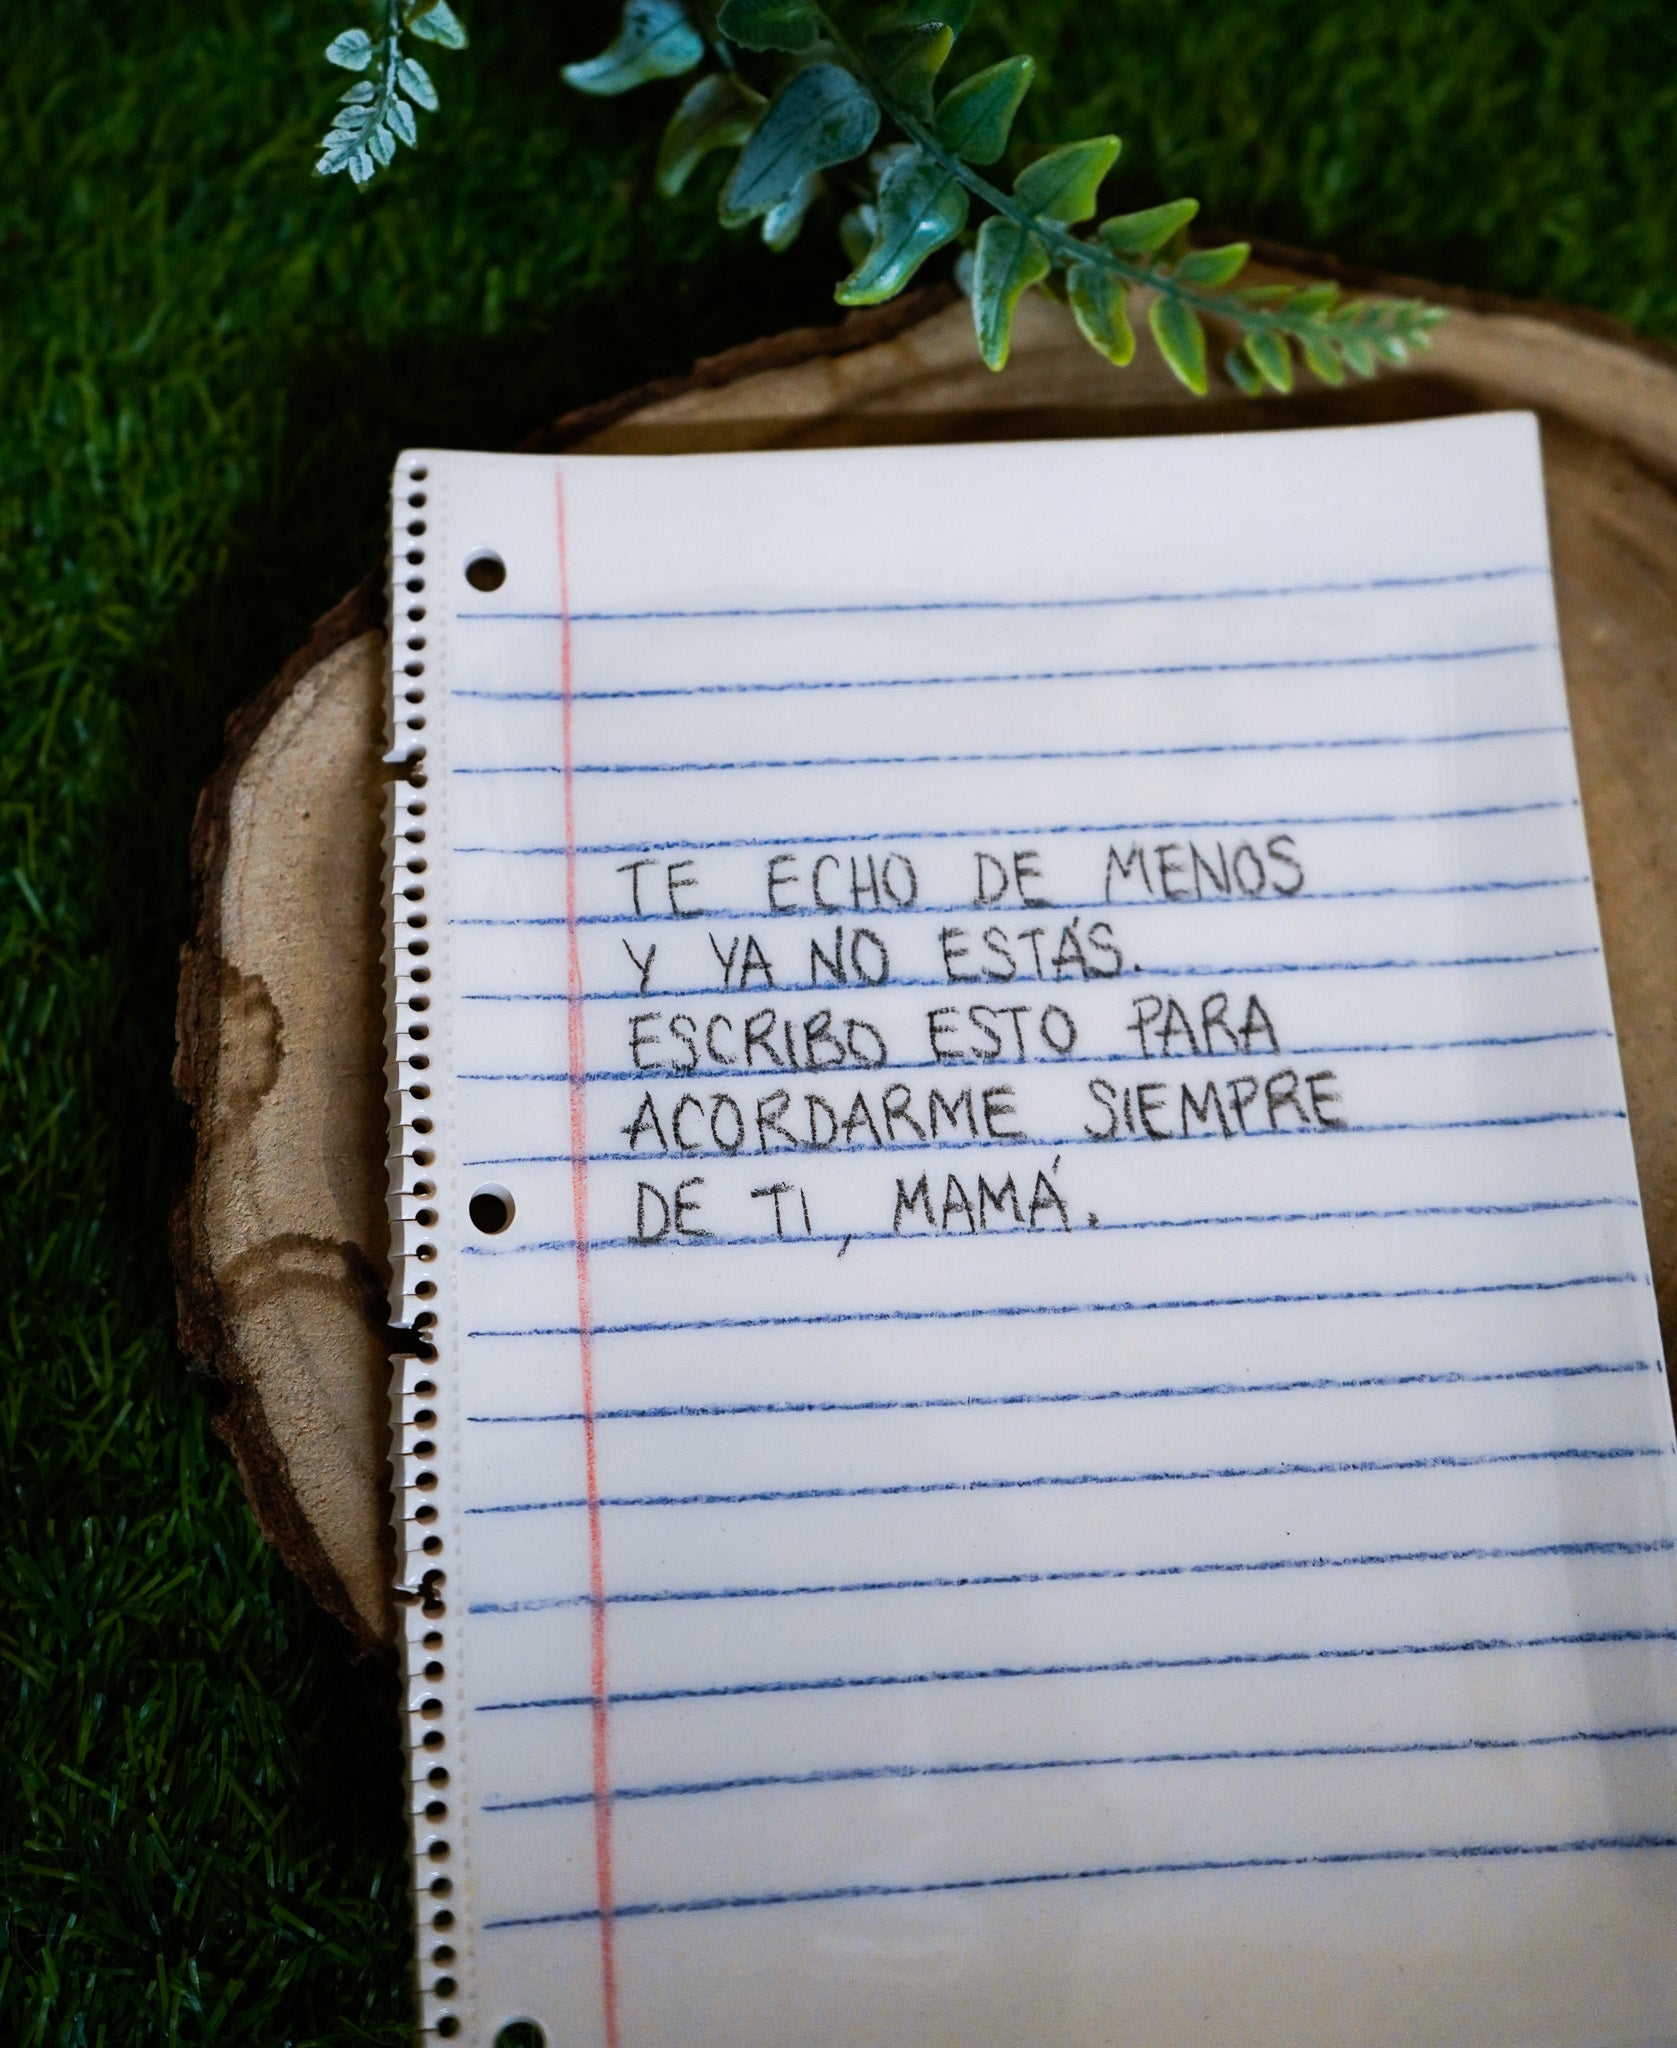 TE ECHO DE MENOS
Y YA NO ESTÁS.
ESCRIBO ESTO PARA
ACORDARME SIEMPRE
DE TI, MAMÁ.